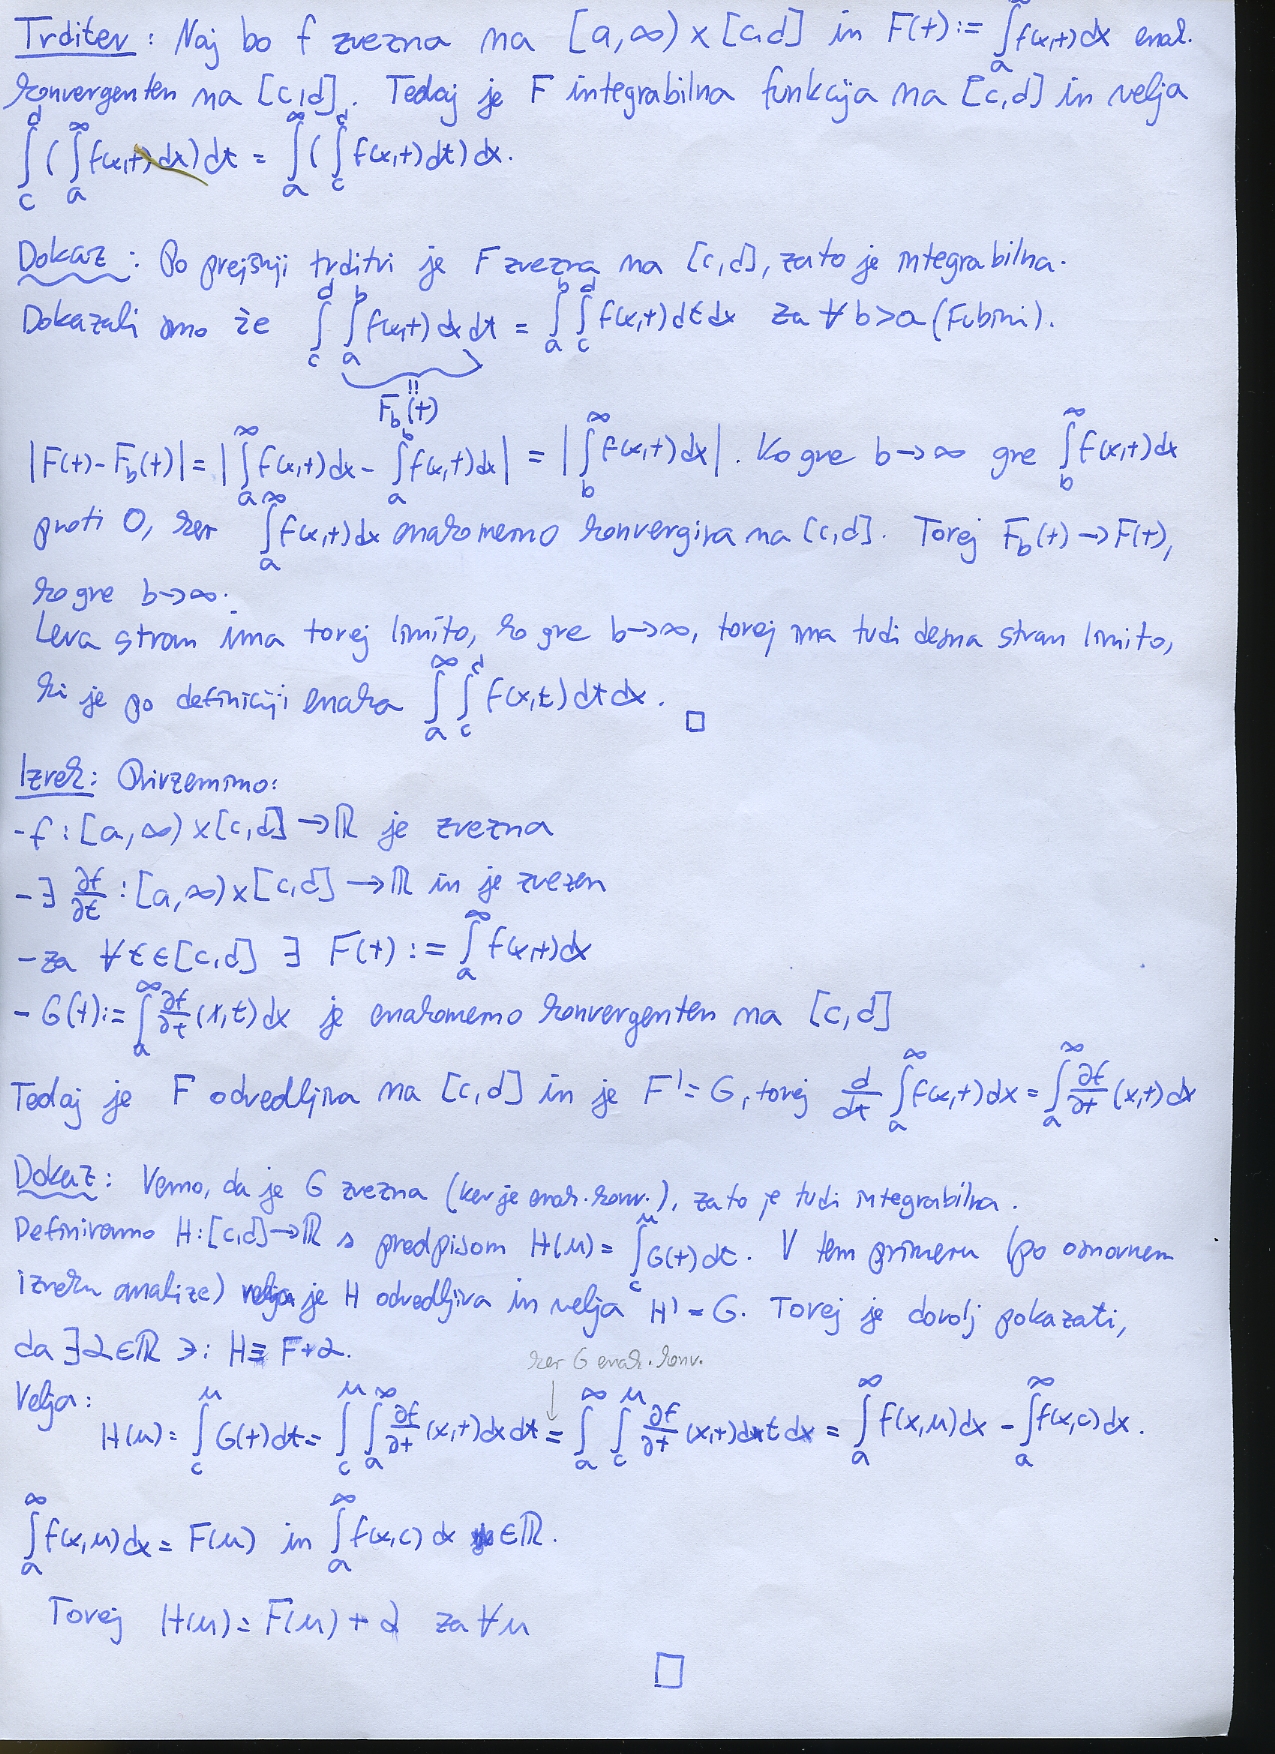 Trditev: Naj bo f zvezna na [a,∞)×[c,d] in F(t):=∫_a^∞ f(x,t)dx enak.
konvergenten na [c,d]. Tedaj je F integrabilna funkcija na [c,d] in velja
∫_c^d (∫_a^∞ f(x,t)dx)dt = ∫_a^∞ (∫_c^d f(x,t)dt)dx.
Dokaz: Po prejšnji trditvi je F zvezna na [c,d], zato je integrabilna.
Dokazali smo že ∫_c^d ∫_a^b f(x,t)dxdt = ∫_a^b ∫_c^d f(x,t)dtdx za ∀b>a (Fubini).
F_b(t)
|F(t)-F_b(t)| = |∫_a^∞ f(x,t)dx - ∫_a^b f(x,t)dx| = |∫_b^∞ f(x,t)dx|. Ko gre b→∞ gre ∫_b^∞ f(x,t)dx
proti 0, ker ∫_a^∞ f(x,t)dx enakomerno konvergira na [c,d]. Torej F_b(t)→F(t),
ko gre b→∞.
Leva stran ima torej limito, ko gre b→∞, torej ima tudi desna stran limito,
ki je po definiciji enaka ∫_a^∞ ∫_c^d f(x,t)dtdx. □
Izrek: Privzemimo:
- f:[a,∞)×[c,d]→ℝ je zvezna
- ∃ ∂f/∂t : [a,∞)×[c,d]→ℝ in je zvezen
- za ∀t∈[c,d] ∃ F(t):=∫_a^∞ f(x,t)dx
- G(t):=∫_a^∞ ∂f/∂t(x,t)dx je enakomerno konvergenten na [c,d]
Tedaj je F odvedljiva na [c,d] in je F'=G, torej d/dt ∫_a^∞ f(x,t)dx = ∫_a^∞ ∂f/∂t(x,t)dx
Dokaz: Vemo, da je G zvezna (ker je enak. konv.), zato je tudi integrabilna.
Definiramo H:[c,d]→ℝ s predpisom H(μ)=∫_c^μ G(t)dt. V tem primeru (po osnovnem
izreku analize) je H odvedljiva in velja H'=G. Torej je dovolj pokazati,
da ∃α∈ℝ ∋: H≡F+α.
ker G enak. konv.
Velja:
H(μ)=∫_c^μ G(t)dt=∫_c^μ ∫_a^∞ ∂f/∂t(x,t)dxdt = ∫_a^∞ ∫_c^μ ∂f/∂t(x,t)dtdx = ∫_a^∞ f(x,μ)dx - ∫_a^∞ f(x,c)dx.
∫_a^∞ f(x,μ)dx = F(μ) in ∫_a^∞ f(x,c)dx ∈ℝ.
Torej H(μ)=F(μ)+α za ∀μ
□